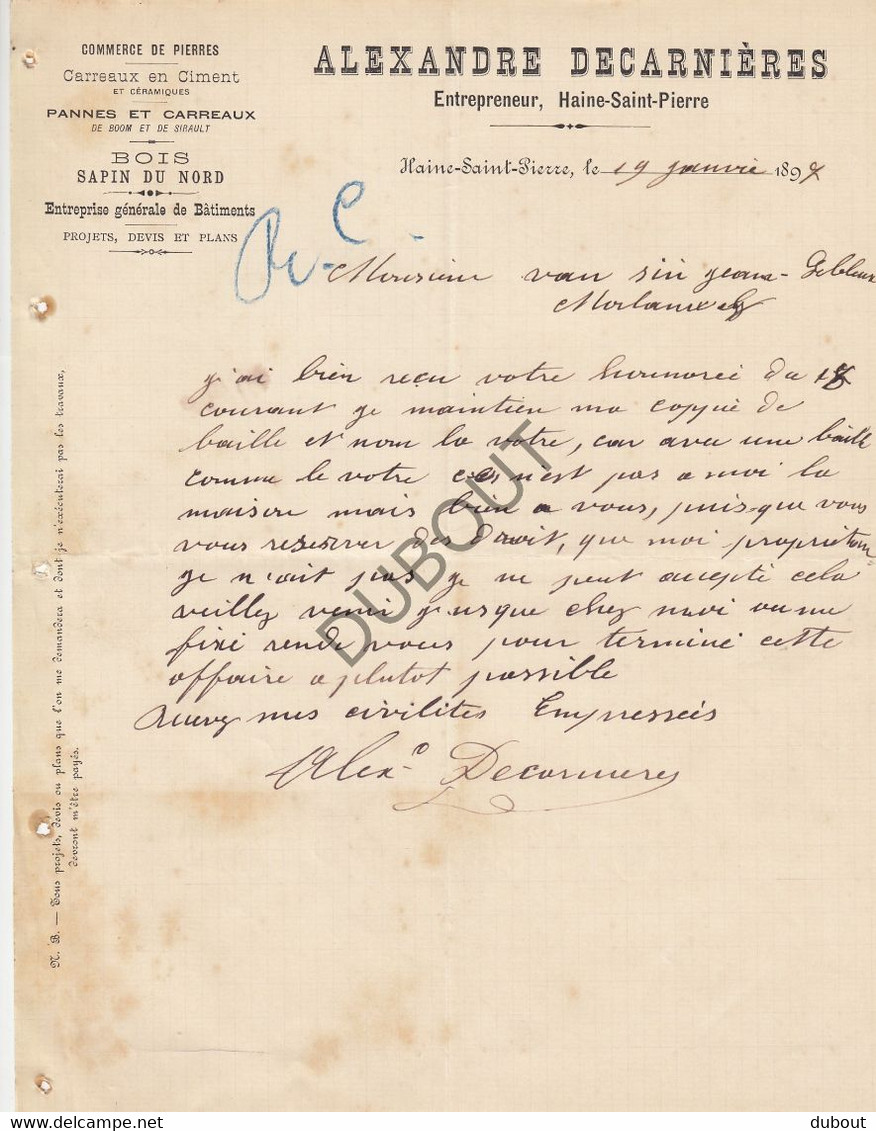 COMMERCE DE PIERRES
Carreaux en Ciment
ET CÉRAMIQUES
PANNES ET CARREAUX
DE BOOM ET DE SIRAULT
BOIS
SAPIN DU NORD
Entreprise générale de Bâtiments
PROJETS, DEVIS ET PLANS
ALEXANDRE DECARNIÈRES
Entrepreneur, Haine-Saint-Pierre
Haine-Saint-Pierre, le 19 janvie 1897
Monsieur van
j'ai bien reçu votre du 18
courant je maintien ma coppie de
baille et nom la votre, car avec une baille
comme le votre n'est pas a moi la
maison mais bien a vous, puis que vous
vous reserver des droit, que moi
je n'ait pas je ne peut accepté cela
veillez venir jusque chez moi ou me
fixé rende vous pour terminé cette
affaire o plutot possible
mes civilites Empressées
Alex. Decarnieres
N. B. — Tous projets, devis ou plans que l'on me demandera et dont je n'exécuterai pas les travaux,
devront m'être payés.
DUBOUT
delcampe.net
dubout